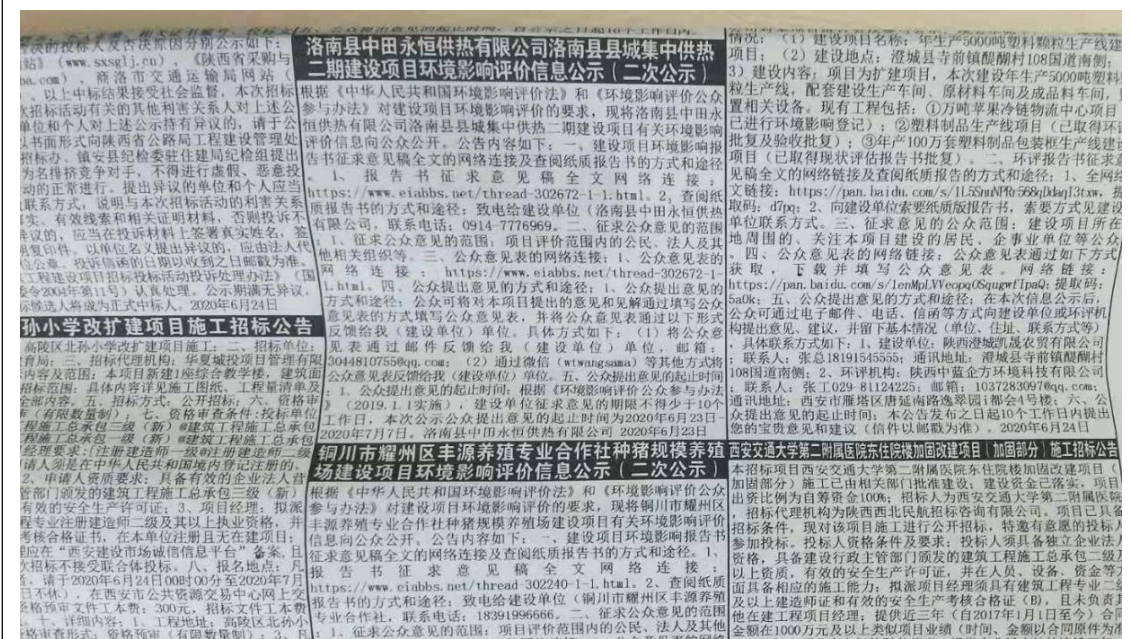 否决的投标人及否决原因分别公示如下：
站》（www.sxsglj.cn）、《陕西省采购与
ba.com）、商洛市交通运输局网站（
以上中标结果接受社会监督，本次招标
次招标活动有关的其他利害关系人对上述公
单位和个人对上述公示持有异议的，请于公
以书面形式向陕西省公路局工程建设管理处
招标办、镇安县纪检委驻住建局纪检组提出
为名排挤竞争对手，不得进行虚假、恶意投
动的正常进行。提出异议的单位和个人应当
联系方式，说明与本次招标活动的利害关系
事实、有效线索和相关证明材料，否则投诉不
异议的，应当在投诉材料上签署真实姓名，签
明复印件，以单位名义提出异议的，应由法人代
位公章。投诉信函的日期以收到之日邮戳为准。
工程建设项目招标投标活动投诉处理办法》（国
委令2004年第11号）认真处理。公示期满无异议，
标候选人将成为正式中标人。2020年6月24日
孙小学改扩建项目施工招标公告
高陵区北孙小学改扩建项目施工；二、招标单位：
育局；三、招标代理机构：华夏城投项目管理有限
内容及范围：本项目新建1座综合教学楼，建筑面
招标范围：具体内容详见施工图纸、工程量清单及
全部内容。五、招标方式：公开招标；六、资格审
审（有限数量制）；七、资格审查条件：投标单位
程施工总承包三级（新）@建筑工程施工总承包
经理要求：[注册建造师一级@注册建造师二级
请人须是在中华人民共和国境内登记注册的、
2、申请人资质要求：具备有效的企业法人营
管部门颁发的建筑工程施工总承包三级（新）
有效的安全生产许可证；3、项目经理：拟派
程专业注册建造师二级及其以上执业资格，并
考核合格证书，在本单位注册且无在建项目；
理应在“西安建设市场诚信信息平台”备案，且
次招标不接受联合体投标。八、报名地点：凡
者，请于2020年6月24日00时00分至2020年7月
日不休），在西安市公共资源交易中心网上交
资格预审文件工本费：300元，招标文件工本费
十、详细内容：1、工程地址：高陵区北孙小
格审查形式：资格预审（有限数量制）；3、凡
洛南县中田永恒供热有限公司洛南县县城集中供热
二期建设项目环境影响评价信息公示（二次公示）
根据《中华人民共和国环境影响评价法》和《环境影响评价公众
参与办法》对建设项目环境影响评价的要求，现将洛南县中田永
恒供热有限公司洛南县县城集中供热二期建设项目有关环境影响
评价信息向公众公开。公告内容如下：一、建设项目环境影响报
告书征求意见稿全文的网络链接及查阅纸质报告书的方式和途径
。1、报告书征求意见稿全文网络链接：
https://www.eiabbs.net/thread-302672-1-1.html。2、查阅纸
质报告书的方式和途径：致电给建设单位（洛南县中田永恒供热
有限公司，联系电话：0914-7776969。二、征求公众意见的范围
：1、征求公众意见的范围：项目评价范围内的公民、法人及其
他相关组织等。三、公众意见表的网络连接：1、公众意见表的
网络连接：https://www.eiabbs.net/thread-302672-1-
1.html。四、公众提出意见的方式和途径：1、公众提出意见的
方式和途径：公众可将对本项目提出的意见和见解通过填写公众
意见表的方式填写公众意见表，并将公众意见表通过以下形式
反馈给我（建设单位）单位。具体方式如下：（1）将公众意
见表通过邮件反馈给我（建设单位）单位，邮箱：
3044810755@qq.com；（2）通过微信（wtwangsama）等其他方式将
公众意见表反馈给我（建设单位）单位。五、公众提出意见的起止时间
：1、公众提出意见的起止时间：根据《环境影响评价公众参与办法
》（2019.1.1实施），建设单位征求意见的期限不得少于10个
工作日，本次公示公众提出意见的起止时间为2020年6月23日-
2020年7月7日。洛南县中田永恒供热有限公司 2020年6月23日
铜川市耀州区丰源养殖专业合作社种猪规模养殖
场建设项目环境影响评价信息公示（二次公示）
根据《中华人民共和国环境影响评价法》和《环境影响评价公众
参与办法》对建设项目环境影响评价的要求，现将铜川市耀州区
丰源养殖专业合作社种猪规模养殖场建设项目有关环境影响评价
信息向公众公开。公告内容如下：一、建设项目环境影响报告书
征求意见稿全文的网络连接及查阅纸质报告书的方式和途径。1、
报告书征求意见稿全文网络连接：
https://www.eiabbs.net/thread-302240-1-1.html。2、查阅纸质
报告书的方式和途径：致电给建设单位（铜川市耀州区丰源养殖
专业合作社，联系电话：18391996666。二、征求公众意见的范围
：1、征求公众意见的范围：项目评价范围内的公民、法人及其他
情况：（1）建设项目名称：年生产5000吨塑料颗粒生产线建
项目；（2）建设地点：澄城县寺前镇醍醐村108国道南侧；
3）建设内容：项目为扩建项目，本次建设年生产5000吨塑料
粒生产线，配套建设生产车间、原材料车间及成品料车间，
置相关设备。现有工程包括：①万吨苹果冷链物流中心项目
已进行环境影响登记）；②塑料制品生产线项目（已取得环评
批复及验收批复）；③年产100万套塑料制品包装框生产线建设
项目（已取得现状评估报告书批复）。二、环评报告书征求意
见稿全文的网络链接及查阅纸质报告书的方式和途径：1、全网络
文链接：https://pan.baidu.com/s/1L5SnuNPRr568qDdagI3txw，提
取码：d7pq；2、向建设单位索要纸质版报告书，索要方式见建设
单位联系方式。三、征求意见的公众范围：建设项目所在
地周围的、关注本项目建设的居民、企事业单位等公众
。四、公众意见表的网络链接：公众意见表通过如下方式
获取，下载并填写公众意见表。网络链接：
https://pan.baidu.com/s/1enMpLVVeopqOSqugwfIpaQ；提取码：
5a0k；五、公众提出意见的方式和途径：在本次信息公示后，
公众可通过电子邮件、电话、信函等方式向建设单位或环评机
构提出意见、建议，并留下基本情况（单位、住址、联系方式等）
。具体联系方式如下：1、建设单位：陕西澄城凯晟农贸有限公司
；联系人：张总18191545555；通讯地址：澄城县寺前镇醍醐村
108国道南侧；2、环评机构：陕西中蓝企方环境科技有限公司
；联系人：张工029-81124225；邮箱：1037283097@qq.com；
通讯地址：西安市雁塔区唐延南路逸翠园i都会4号楼；六、公
众提出意见的起止时间：本公告发布之日起10个工作日内提出
您的宝贵意见和建议（信件以邮戳为准）。2020年6月24日
西安交通大学第二附属医院东住院楼加固改建项目（加固部分）施工招标公告
本招标项目西安交通大学第二附属医院东住院楼加固改建项目（
加固部分）施工已由相关部门批准建设，建设资金已落实，项目
出资比例为自筹资金100%；招标人为西安交通大学第二附属医院
，招标代理机构为陕西西北民航招标咨询有限公司。项目已具备
招标条件，现对该项目施工进行公开招标，特邀有意愿的投标人
参加投标。投标人资格条件及要求：投标人须具备独立企业法人
资格，具备建设行政主管部门颁发的建筑工程施工总承包二级及
以上资质，有效的安全生产许可证，并在人员、设备、资金等方
面具备相应的施工能力；拟派项目经理须具有建筑工程专业二级
及以上建造师证和有效的安全生产考核合格证（B），且未负责其
他在建工程项目经理；提供近三年（自2017年1月1日至今）合同
金额在1000万元及以上类似项目业绩（时间、金额以合同原件为准